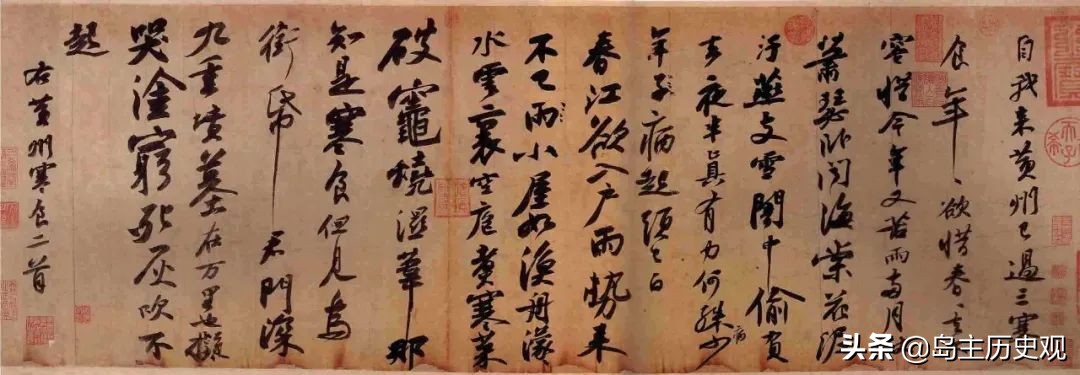 自我来黄州已過三寒
食年〻欲惜春〻去不
容惜今年又苦雨兩月秋
蕭瑟卧聞海棠花泥
汙燕支雪闇中偷負
去夜半真有力何殊少
病
年子病起須已白
春江欲入户雨勢来
不已雨小屋如漁舟濛〻
水雲裏空庖煑寒菜
破竈燒濕葦那
知是寒食但見烏
銜帋君門深
九重墳墓在万里也擬
哭塗窮死灰吹不
起
右黄州寒食二首
头条 @岛主历史观